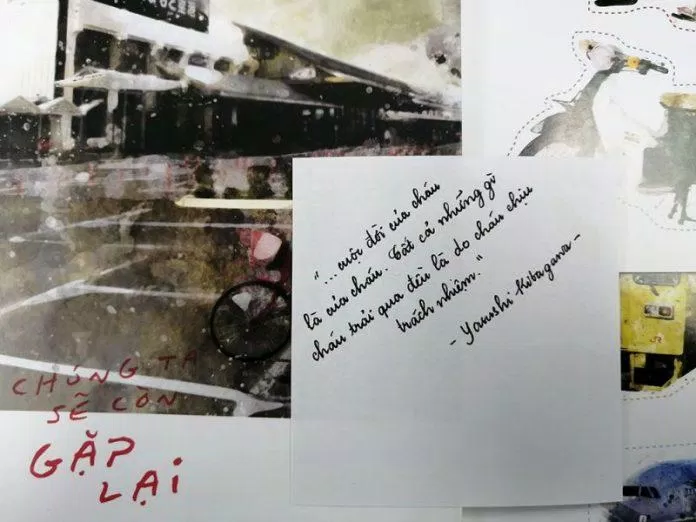 "... cuộc đời của cháu
là của cháu. Tất cả những gì
cháu trải qua đều là do cháu chịu
trách nhiệm."
- Yasushi Kitagawa -
CHÚNG TA
SẼ CÒN
GẶP
LẠI